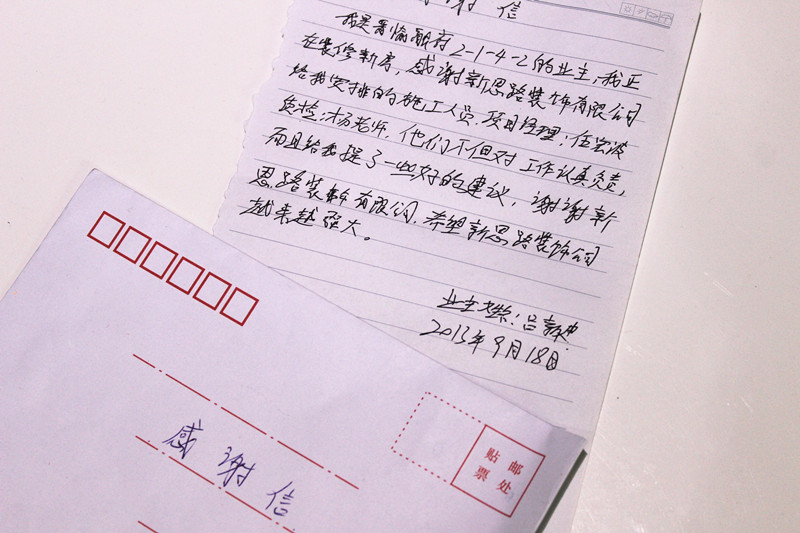 感谢信
我是署愉融府2-1-4-2的业主,我正
在装修新房,感谢新思路装饰有限公司
给我安排的施工人员.项目经理:任宏波
质检:杨老师,他们不但对工作认真负责,
而且给我提了一些好的建议,谢谢新
思路装饰有限公司,希望新思路装饰公司
越来越强大。
业主姓:吕
2013年9月18日
感谢信
贴邮
票处